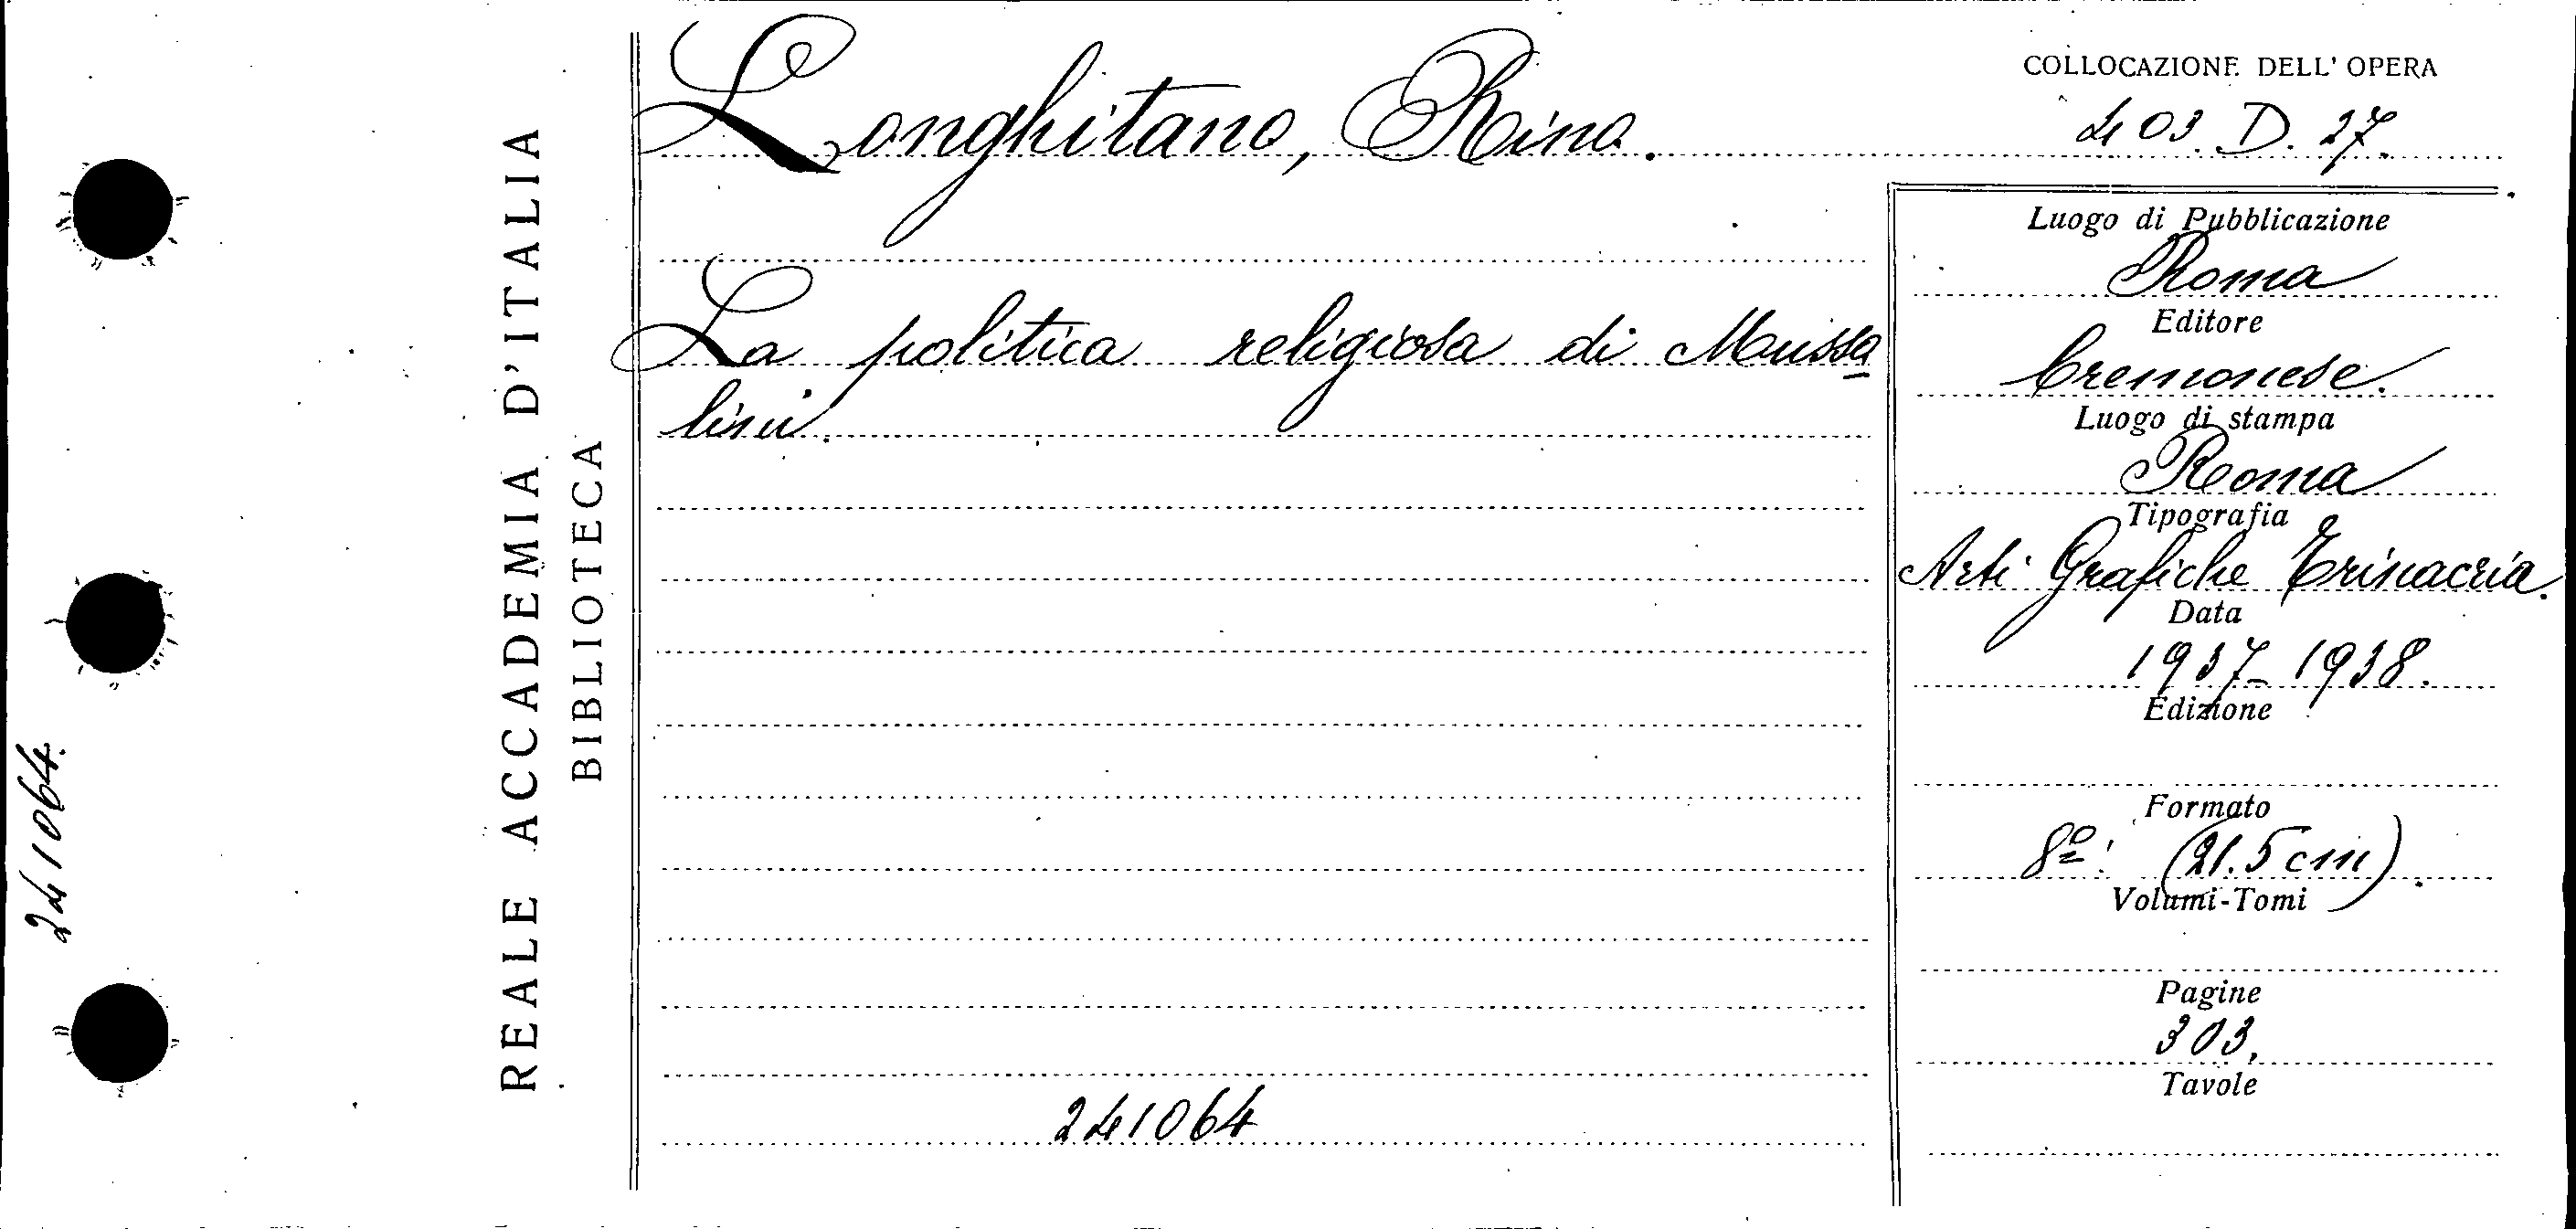 REALE ACCADEMIA D'ITALIA
BIBLIOTECA
241064.
Longhitano, Rino.
La politica religiosa di Musso
lini.
241064
COLLOCAZIONE DELL' OPERA
403. D. 27.
Luogo di Pubblicazione
Roma
Editore
Cremonese.
Luogo di stampa
Roma
Tipografia
Arti Grafiche Trinacria.
Data
1937-1938.
Edizione
Formato
8º: (21.5 cm).
Volumi-Tomi
Pagine
303.
Tavole